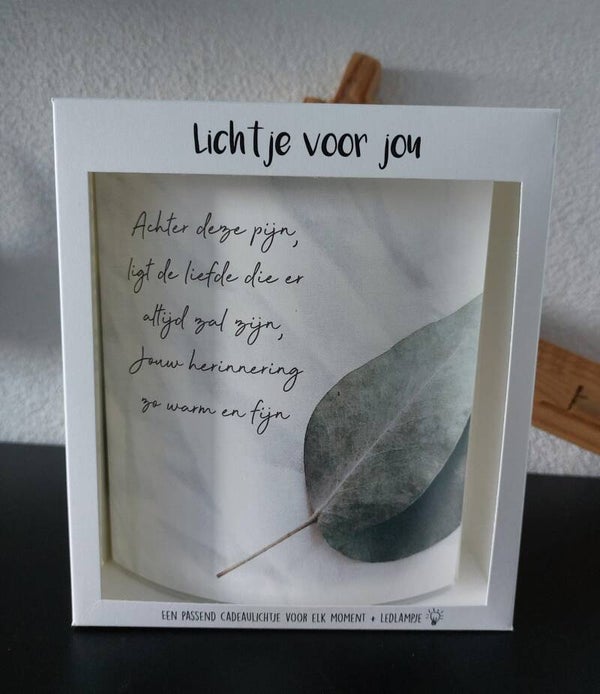 Lichtje voor jou
Achter deze pijn,
ligt de liefde die er
altijd zal zijn,
Jouw herinnering
zo warm en fijn
EEN PASSEND CADEAULICHTJE VOOR ELK MOMENT + LEDLAMPJE